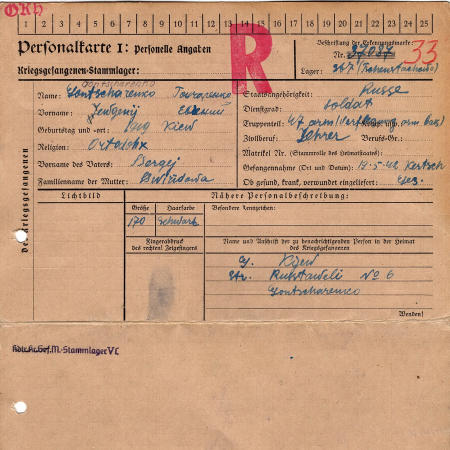 OKH
1 2 3 4 5 6 7 8 9 10 11 12 13 14 15 16 17 18 19 20 21 22 23 24 25
Personalkarte I: Personelle Angaben
Kriegsgefangenen-Stammlager:
R
Beschriftung der Erkennungsmarke
Nr. 37087
33
Lager: 367
des Kriegsgefangenen
Gontscharenko
Name: Gontscharenko Гончаренко
Vorname: Jewgenij Евгений
Geburtstag und -ort: Kiew
Religion: Ortodox
Vorname des Vaters: Sergej
Familienname der Mutter:
Staatsangehörigkeit: Russe
Dienstgrad: Soldat
Truppenteil: 47 arm
Zivilberuf: Lehrer Berufs-Gr.:
Matrikel Nr. (Stammrolle des Heimatstaates):
Gefangennahme (Ort und Datum): 19.5.42 Kertsch
Ob gesund, krank, verwundet eingeliefert: Ges.
Lichtbild
Nähere Personalbeschreibung:
Größe Haarfarbe Besondere Kennzeichen:
170 Schwarz
Fingerabdruck
des rechten! Zeigefingers
Name und Anschrift der zu benachrichtigenden Person in der Heimat
des Kriegsgefangenen
G. Kiew
Str. Rustaweli No 6
Gontscharenko
Wenden!
Kdtr.Kr.Gef.M.-Stammlager VI